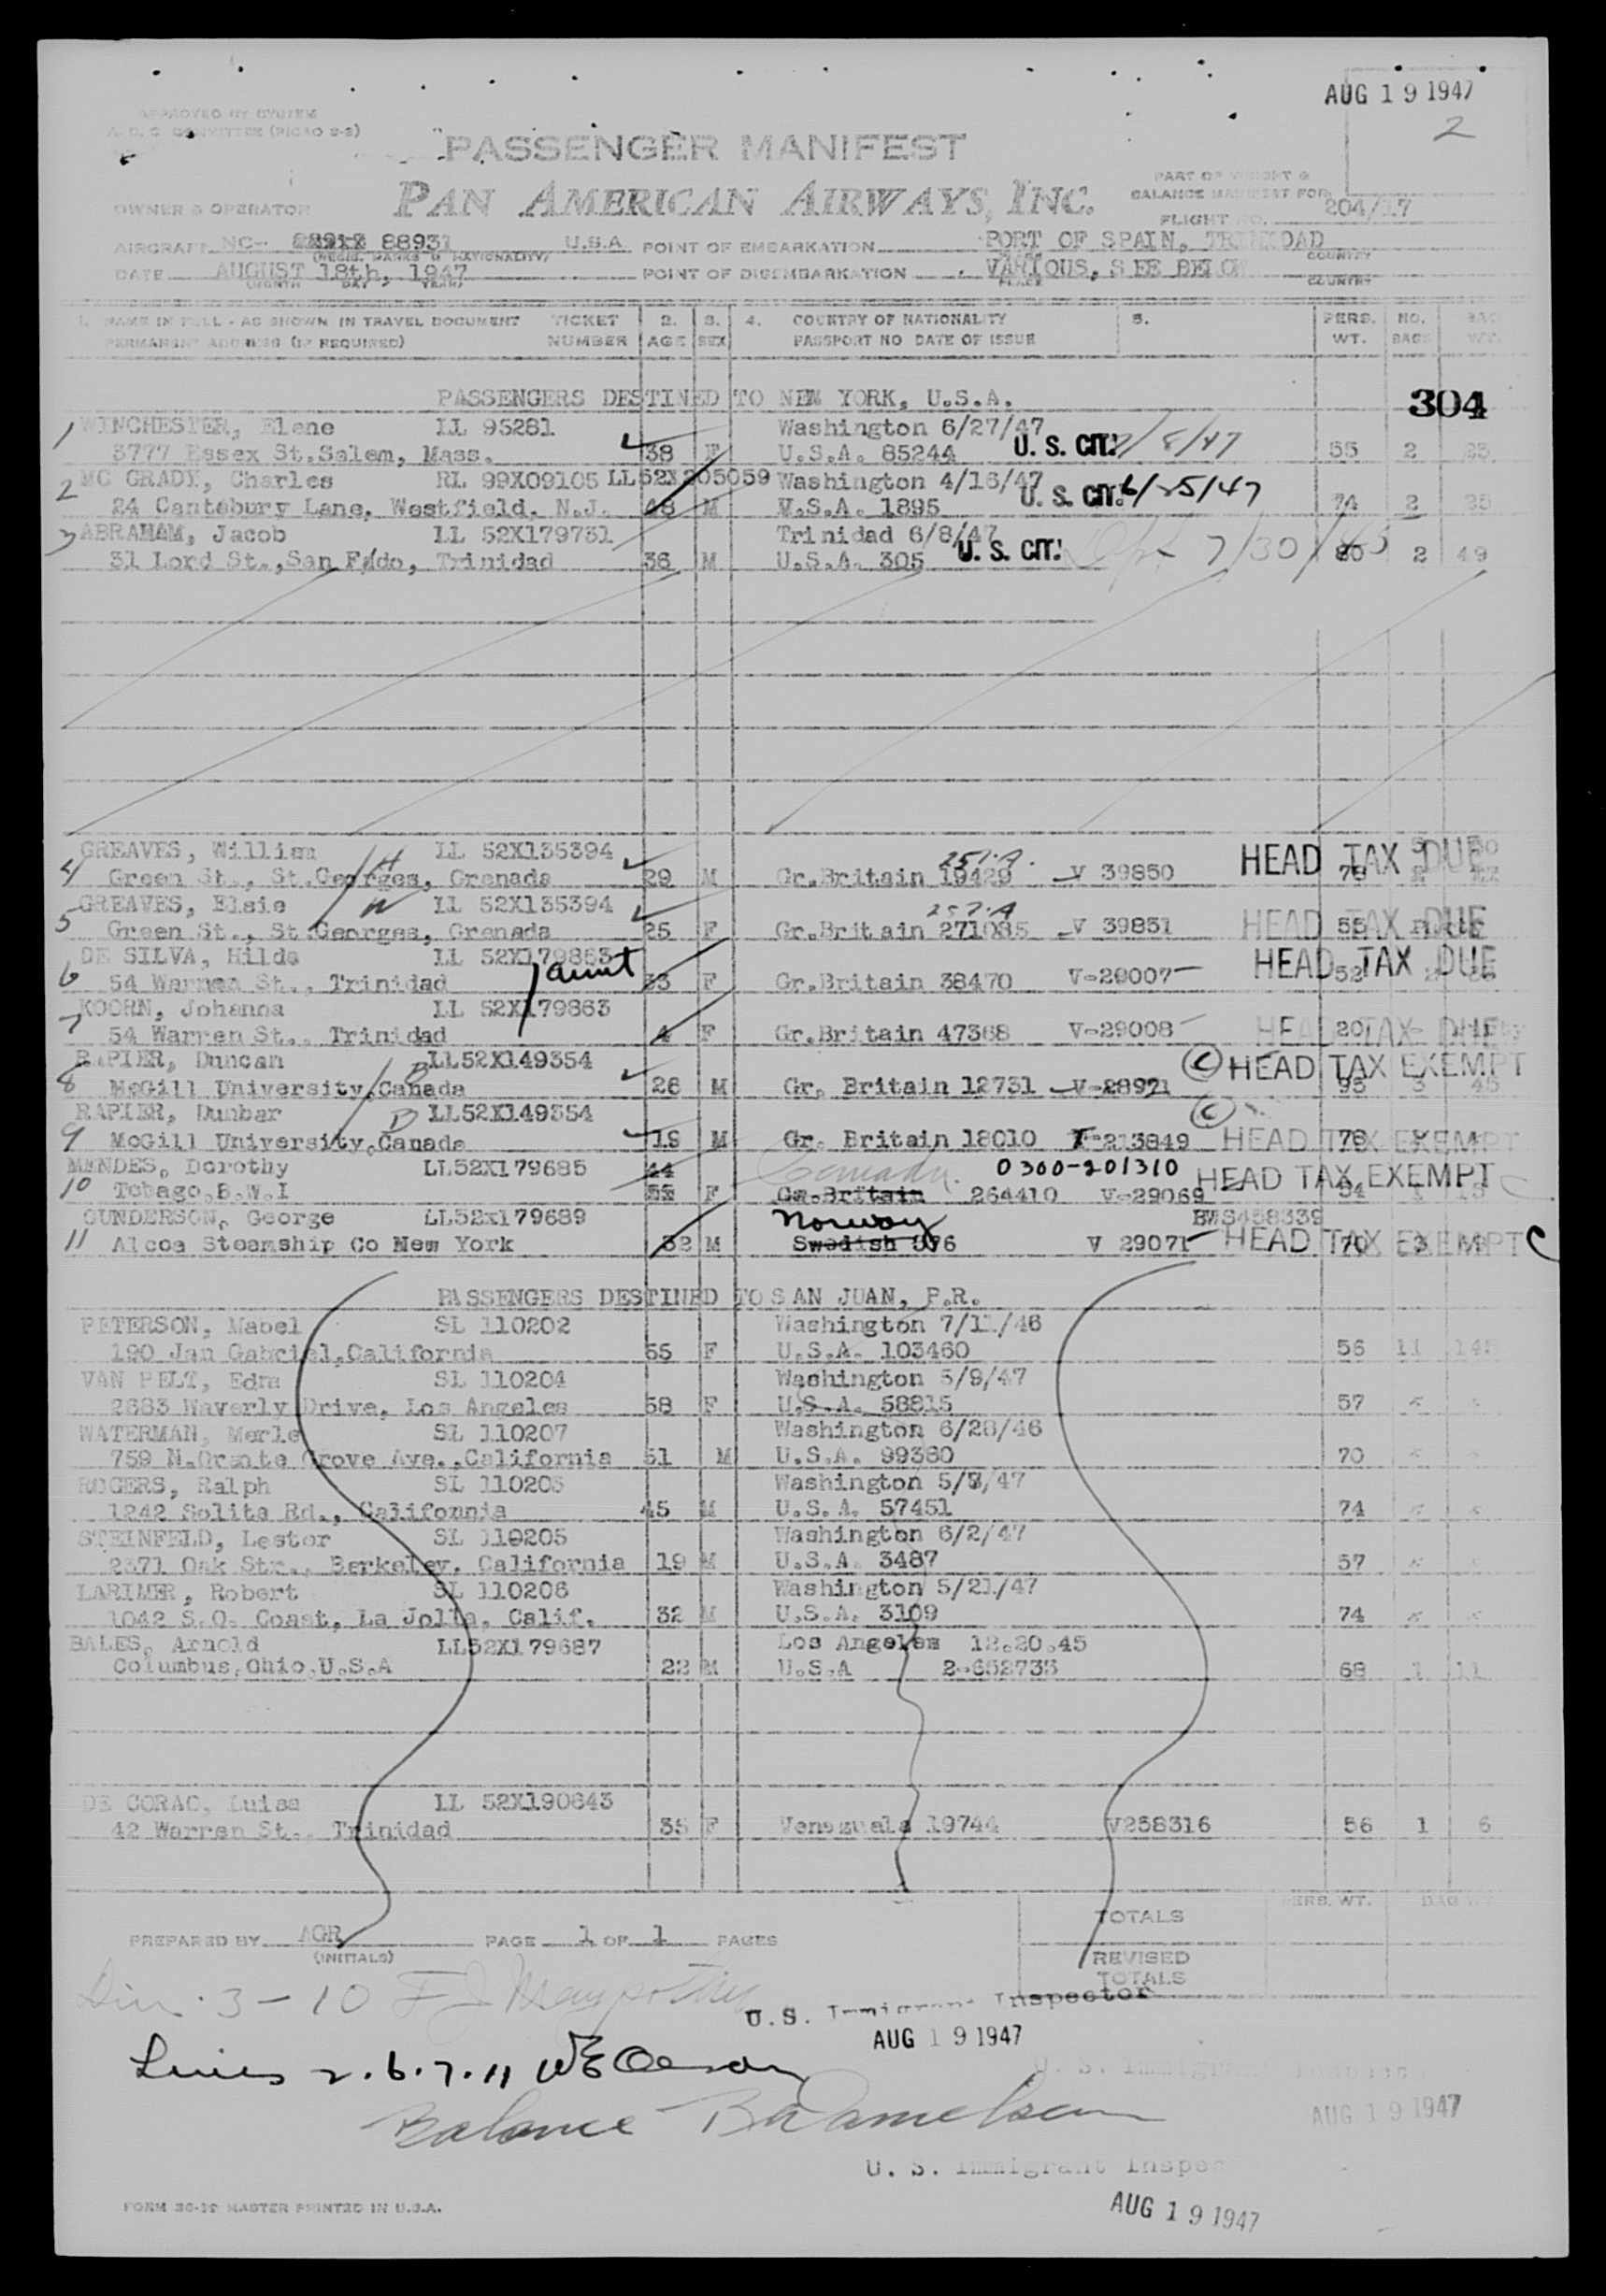 AUG 19 1947
2
APPROVED BY SYSTEM
PASSENGER MANIFEST
PAN AMERICAN AIRWAYS, INC.
PART OF WEIGHT &
BALANCE MANIFEST FOR
OWNER & OPERATOR
FLIGHT NO. 204/17
AIRCRAFT NC- 88931 U.S.A POINT OF EMBARKATION PORT OF SPAIN, TRINIDAD
(REGIS. MARKS & NATIONALITY) COUNTRY
DATE AUGUST 18th, 1947 POINT OF DISEMBARKATION VARIOUS, SEE BELOW
(MONTH DAY YEAR) PLACE COUNTRY
1. NAME IN FULL - AS SHOWN IN TRAVEL DOCUMENT TICKET 2. 3. 4. COUNTRY OF NATIONALITY 5. PERS. NO. BAG
PERMANENT ADDRESS (IF REQUIRED) NUMBER AGE SEX PASSPORT NO DATE OF ISSUE WT. BAGS WT.
PASSENGERS DESTINED TO NEW YORK, U.S.A. 304
1 WINCHESTER, Elene LL 95281 Washington 6/27/47
3777 Essex St.Salem, Mass. 38 F U.S.A. 85244 U. S. CIT. 7/8/47 55 2 25
2 MC GRADY, Charles RL 99X09105 LL52X205059 Washington 4/16/47
24 Cantebury Lane, Westfield, N.J. 48 M U.S.A. 1895 U. S. CIT. 6/25/47 74 2 25
3 ABRAHAM, Jacob LL 52X179731 Trinidad 6/8/47
31 Lord St.,San F/do, Trinidad 36 M U.S.A. 305 U. S. CIT. 7/30/45 80 2 49
GREAVES, William LL 52X135394
4 H Green St., St.Georges, Grenada 29 M Gr.Britain 19429 257.A. V 39850 HEAD TAX DUE
GREAVES, Elsie LL 52X135394
5 W Green St., St.Georges, Grenada 25 F Gr.Britain 271085 257.A V 39851 HEAD TAX DUE 55
DE SILVA, Hilda LL 52X179863
6 54 Warren St., Trinidad aunt 33 F Gr.Britain 38470 V-29007 HEAD TAX DUE 52
KOORN, Johanna LL 52X179863
7 54 Warren St., Trinidad 4 F Gr.Britain 47368 V-29008 HEAD TAX DUE 20
RAPIER, Duncan LL52X149354
8 B McGill University,Canada 26 M Gr. Britain 12731 V-28971 C HEAD TAX EXEMPT 95 3 45
RAPIER, Dunbar LL52X149354 C
9 B McGill University,Canada 19 M Gr. Britain 18010 213849 HEAD TAX EXEMPT 78
MENDES, Dorothy LL52X179685 44 Canada. 0300-201310
10 Tobago,B.W.I F Gr.Britain 264410 V-29069 HEAD TAX EXEMPT 54 1 C
GUNDERSON, George LL52x179689 Norway
11 Alcoa Steamship Co New York 32 M Swedish 976 V 29071 HEAD TAX EXEMPT 70 C
PASSENGERS DESTINED TO SAN JUAN, P.R.
PETERSON, Mabel SL 110202 Washington 7/11/46
190 Jan Gabriel,California 55 F U.S.A. 103460 56 11 145
VAN PELT, Edna SL 110204 Washington 5/9/47
2683 Waverly Drive, Los Angeles 58 F U.S.A. 58815 57
WATERMAN, Merle SL 110207 Washington 6/26/46
759 N.Grante Grove Ave.,California 51 M U.S.A. 99360 70
ROGERS, Ralph SL 110203 Washington 5/8/47
1242 Solita Rd., California 45 M U.S.A. 57451 74
STEINFELD, Lester SL 110205 Washington 6/2/47
2371 Oak Str., Berkeley, California 19 M U.S.A. 3487 57
LARIMER, Robert SL 110206 Washington 5/21/47
1042 S.O. Coast, La Jolla, Calif. 32 M U.S.A. 3109 74
BALES, Arnold LL52X179687 Los Angeles 12.20.45
Columbus,Ohio,U.S.A 22 M U.S.A 2-652733 68 1 11
DE CORAO, Luisa LL 52X190643
42 Warren St., Trinidad 35 F Venezuela 19744 V258316 56 1 6
PERS. WT. BAG WT.
TOTALS
PREPARED BY AGR PAGE 1 OF 1 PAGES
(INITIALS) REVISED
TOTALS
3-10
U. S. Immigrant Inspector
AUG 19 1947
Lines 2.6.7.11
U. S. Immigrant Inspector
Balance
AUG 19 1947
U. S. Immigrant Inspec
FORM 36-15 MASTER PRINTED IN U.S.A.
AUG 19 1947